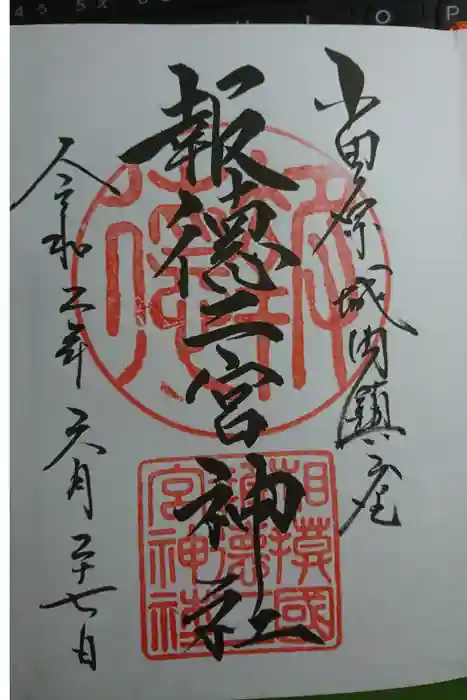 小田原城内鎮座
報徳二宮神社
令和二年六月二十七日
相模國
報徳二
宮神社